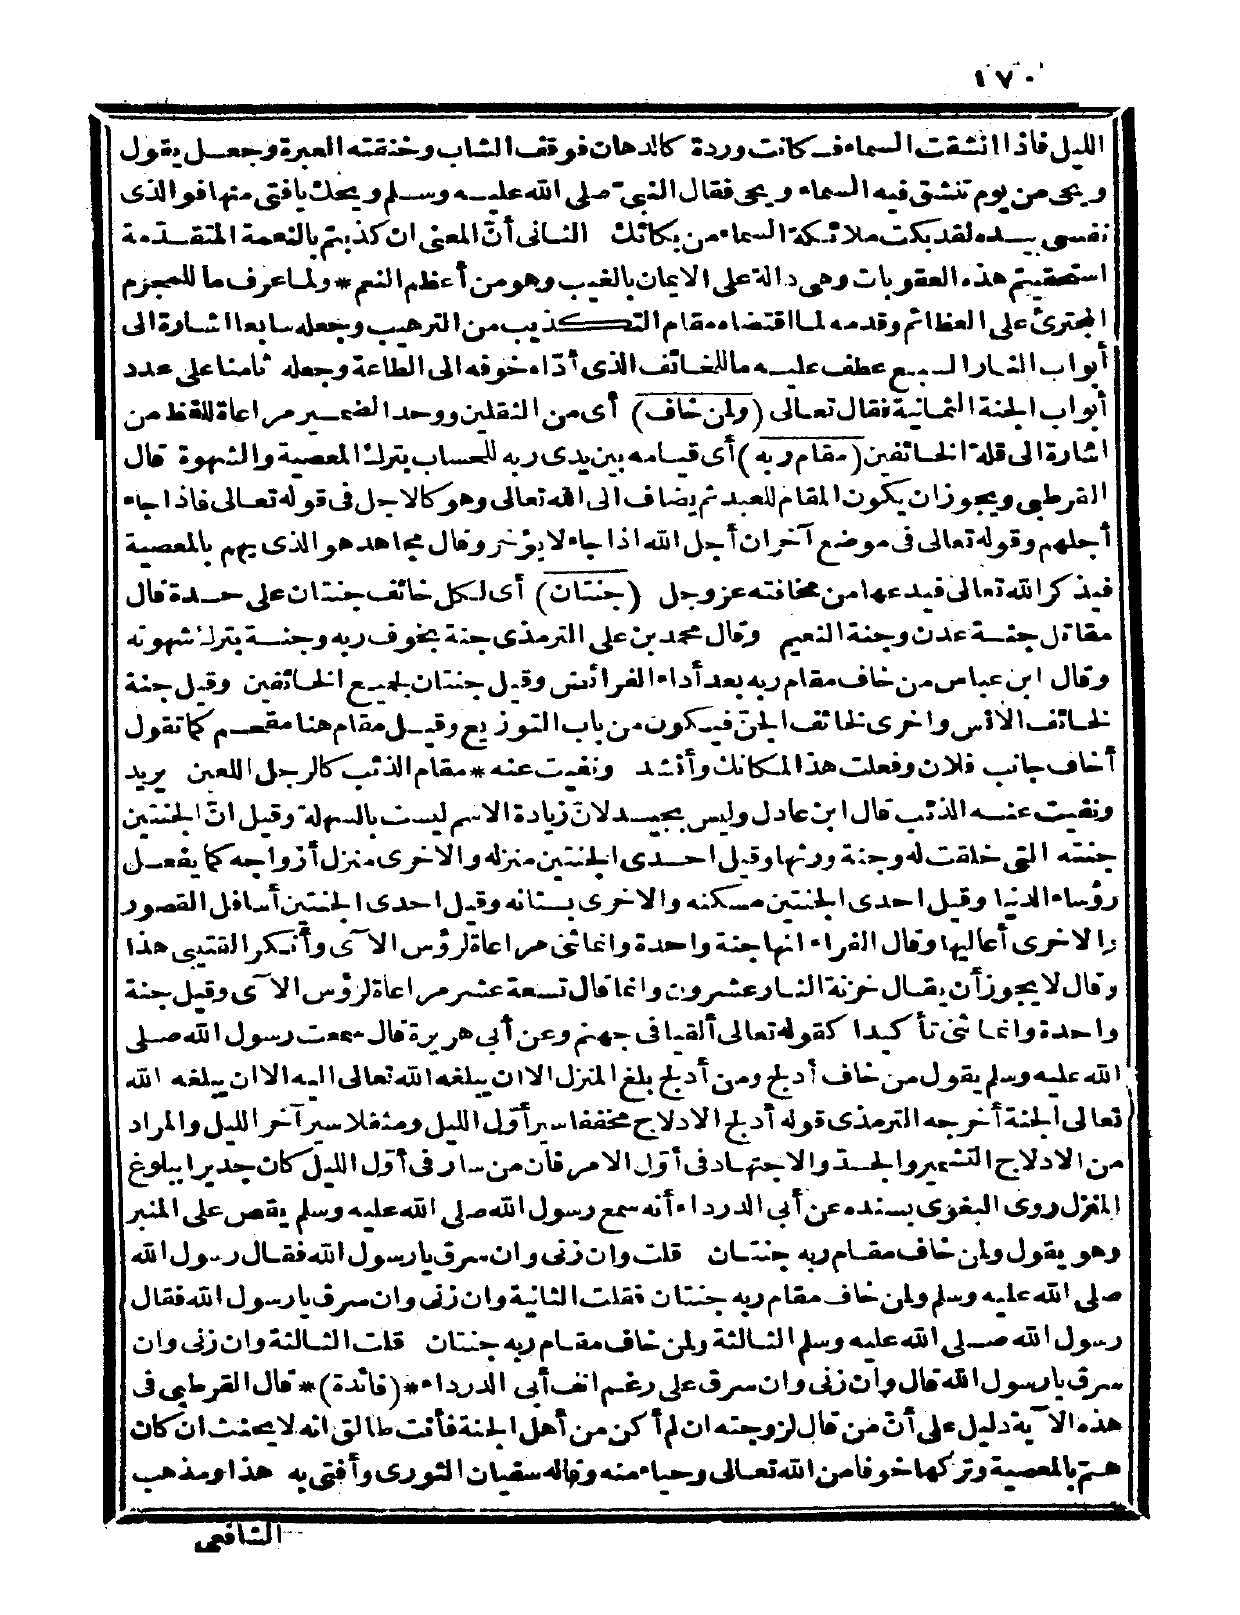 ١٧٠
الليل فاذا انشقت السماء فكانت وردة كالدهان فوقف الشاب وخنقته العبرة وجعل يقول
ويحى من يوم تنشق فيه السماء ويحى فقال النبىّ صلى الله عليه وسلم ويحك يافتى منها فو الذى
نفسى بيده لقد بكت ملائكة السماء من بكائك الثانى أنّ المعنى ان كذبتم بالنعمة المتقدّمة
استحقيتم هذه العقوبات وهى دالة على الايمان بالغيب وهو من أعظم النعم * ولما عرف ما للمجرم
المجترئ على العظائم وقدمه لما اقتضاه مقام التكذيب من الترهيب وجعله سابعا اشارة الى
أبواب النار السبع عطف عليه ما للخائف الذى أدّاه خوفه الى الطاعة وجعله ثامنا على عدد
أبواب الجنة الثمانية فقال تعالى (ولمن خاف) أى من الثقلين ووحد الضمير مراعاة للفظ من
اشارة الى قلة الخائفين (مقام ربه) أى قيامه بين يدى ربه للحساب بترك المعصية والشهوة قال
القرطبى ويجوز ان يكون المقام للعبد ثم يضاف الى الله تعالى وهو كالاجل فى قوله تعالى فاذا جاء
أجلهم وقوله تعالى فى موضع آخر ان أجل الله اذا جاء لا يؤخر وقال مجاهد هو الذى يهم بالمعصية
فيذكر الله تعالى فيدعها من مخافته عز وجل (جنتان) أى لكل خائف جنتان على حدة قال
مقاتل جنة عدن وجنة النعيم وقال محمد بن على الترمذى جنة بخوف ربه وجنة بترك شهوته
وقال ابن عباس من خاف مقام ربه بعد أداء الفرائض وقيل جنتان لجميع الخائفين وقيل جنة
لخائف الانس واخرى لخائف الجنّ فيكون من باب التوزيع وقيل مقام هنا مقحم كما تقول
أخاف جانب فلان وفعلت هذا لمكانك وأنشد ونفيت عنه * مقام الذئب كالرجل اللعين يريد
ونفيت عنه الذئب قال ابن عادل وليس بجيد لانّ زيادة الاسم ليست بالسهلة وقيل انّ الجنتين
جنته التى خلقت له وجنة ورثها وقيل احدى الجنتين منزله والاخرى منزل أزواجه كما يفعل
رؤساء الدنيا وقيل احدى الجنتين مسكنه والاخرى بستانه وقيل احدى الجنتين أسافل القصور
والاخرى أعاليها وقال الفراء انها جنة واحدة وانما ثنى مراعاة لرؤس الآى وأنكر القتيبى هذا
وقال لا يجوز أن يقال خزنة النار عشرون وانما قال تسعة عشر مراعاة لرؤس الآى وقيل جنة
واحدة وانما ثنى تأكيدا كقوله تعالى ألقيا فى جهنم وعن أبى هريرة قال سمعت رسول الله صلى
الله عليه وسلم يقول من خاف أدلج ومن أدلج بلغ المنزل الا ان يبلغه الله تعالى اليه الا ان يبلغه الله
تعالى الجنة أخرجه الترمذى قوله أدلج الادلاج مخففا سير أوّل الليل ومثقلا سير آخر الليل والمراد
من الادلاج التشمير والجد والاجتهاد فى أوّل الامر فان من سار فى أوّل الليل كان جديرا ببلوغ
المنزل روى البغوى بسنده عن أبى الدرداء أنه سمع رسول الله صلى الله عليه وسلم يقص على المنبر
وهو يقول ولمن خاف مقام ربه جنتان قلت وان زنى وان سرق يا رسول الله فقال رسول الله
صلى الله عليه وسلم ولمن خاف مقام ربه جنتان فقلت الثانية وان زنى وان سرق يا رسول الله فقال
رسول الله صلى الله عليه وسلم الثالثة ولمن خاف مقام ربه جنتان قلت الثالثة وان زنى وان
سرق يا رسول الله قال وان زنى وان سرق على رغم انف أبى الدرداء * (فائدة) * قال القرطبى فى
هذه الآية دليل على أنّ من قال لزوجته ان لم أكن من أهل الجنة فأنت طالق انه لا يحنث ان كان
همّ بالمعصية وتركها خوفا من الله تعالى وحياء منه وقاله سفيان الثورى وأفتى به هذا ومذهب
الشافعى